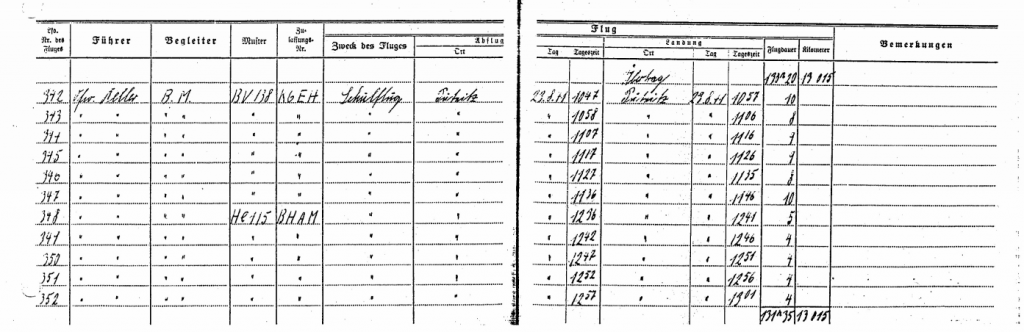 Lfd. Nr. des Fluges | Führer | Begleiter | Muster | Zulassungs-Nr. | Zweck des Fluges | Abflug Ort | Flug Tag | Tageszeit | Landung Ort | Tag | Tageszeit | Flugdauer | Kilometer | Bemerkungen
Übertrag 20 13 015
342 Keller B. M. BV 138 K6EH Schulflug Pütnitz 29.8.41 1047 Pütnitz 29.8.41 1057 10
343 " " " " " " " " " 1058 " " 1106 8
344 " " " " " " " " " 1107 " " 1116 9
345 " " " " " " " " " 1117 " " 1126 9
346 " " " " " " " " " 1127 " " 1135 8
347 " " " " " " " " " 1136 " " 1146 10
348 " " " " He 115 BHAM " " " 1236 " " 1241 5
349 " " " " " " " " " 1242 " " 1246 4
350 " " " " " " " " " 1247 " " 1251 4
351 " " " " " " " " " 1252 " " 1256 4
352 " " " " " " " " " 1257 " " 1301 4
35 13 015